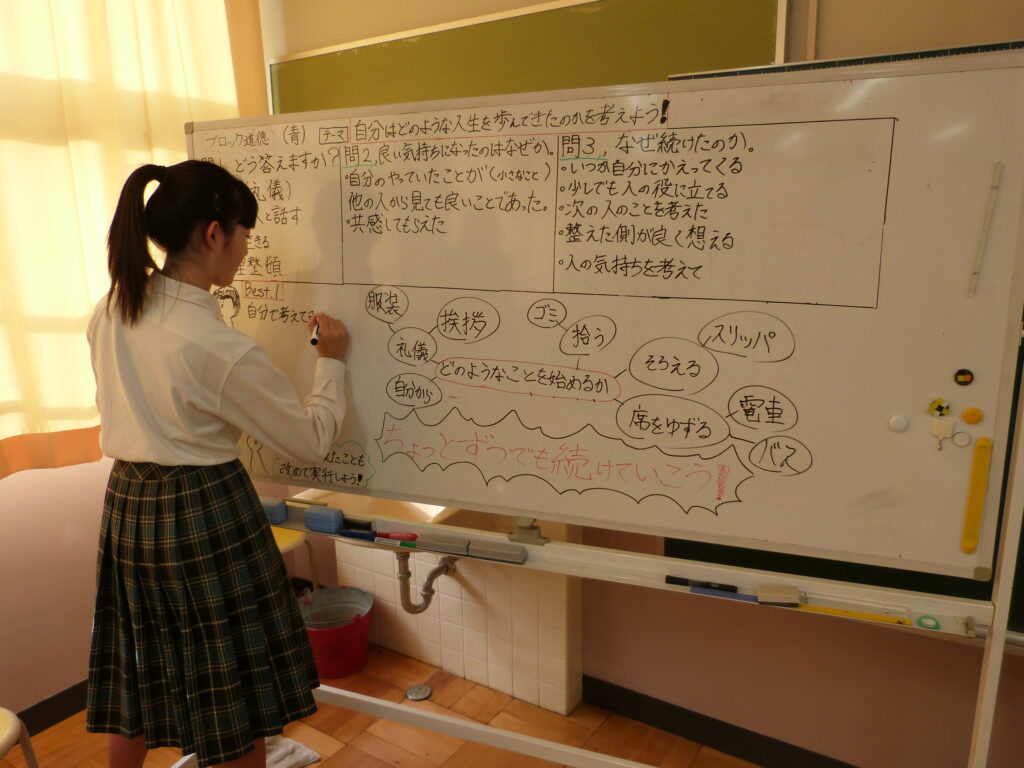 ブロック道徳 (青) テーマ 自分はどのような人生を歩んできたのかを考えよう!
どう答えますか?
礼儀)
と話す
きる
整頓
Best.1
自分で考えて
問2, 良い気持ちになったのはなぜか。
・自分のやっていたことが(小さなこと)
他の人から見ても良いことであった。
・共感してもらえた
問3, なぜ続けたのか。
・いつか自分にかえってくる
・少しでも人の役に立てる
・次の人のことを考えた
・整えた側が良く想える
・人の気持ちを考えて
服装
挨拶
礼儀
自分から
どのようなことを始めるか
ゴミ
拾う
そろえる
スリッパ
席をゆずる
電車
バス
ちょっとずつでも続けていこう!
たことも
改めて実行しよう!